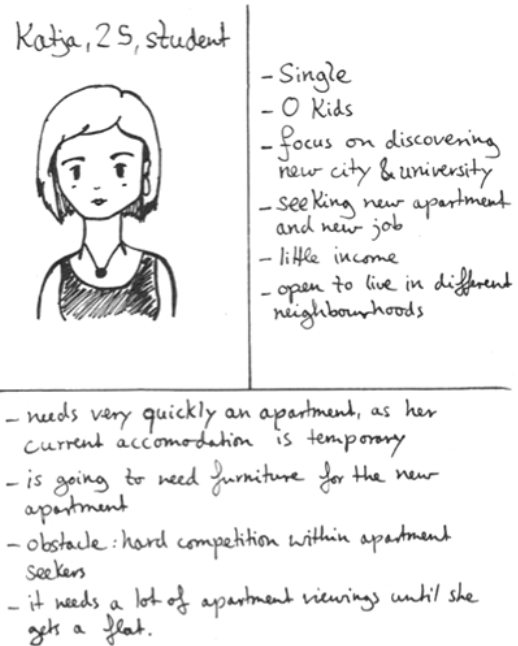 Katja, 25, student
- Single
- 0 Kids
- focus on discovering
new city & university
- seeking new apartment
and new job
- little income
- open to live in different
neighbourhoods
- needs very quickly an apartment, as her
current accomodation is temporary
- is going to need furniture for the new
apartment
- obstacle: hard competition within apartment
seekers
- it needs a lot of apartment viewings until she
gets a flat.